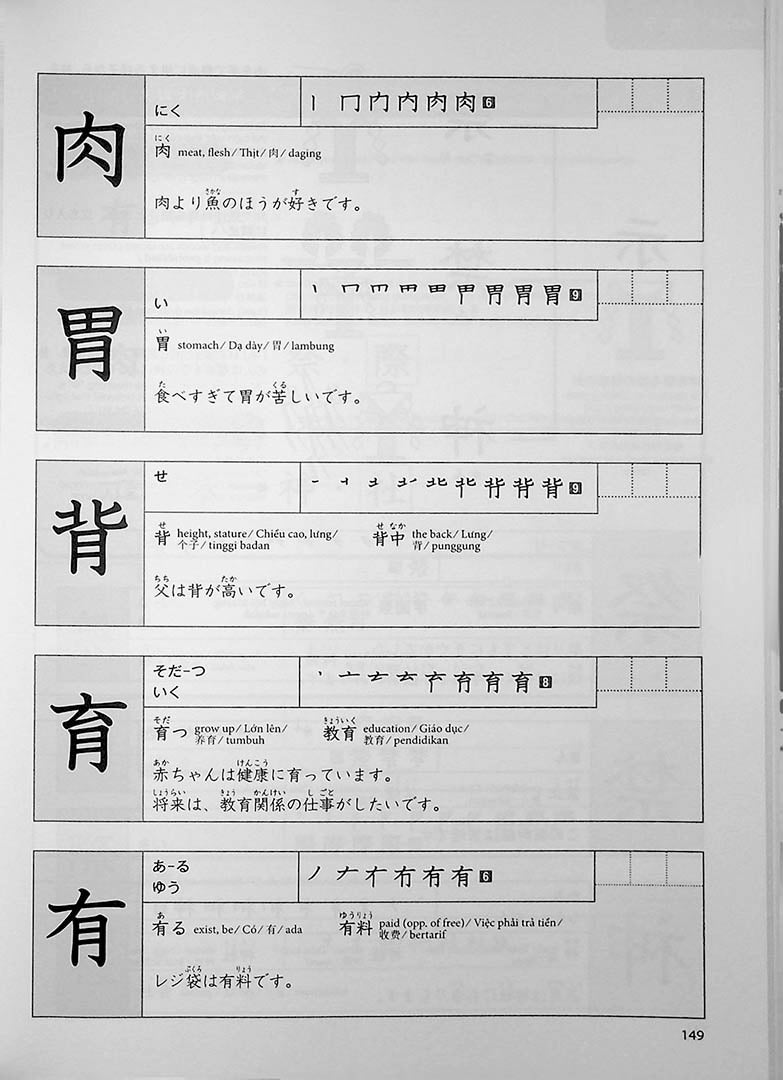 肉
にく
丨 冂 内 内 肉 肉 6
にく
肉 meat, flesh/ Thịt/ 肉/ daging
さかな す
肉より魚のほうが好きです。
胃
い
胃 9
い
胃 stomach/ Dạ dày/ 胃/ lambung
た くる
食べすぎて胃が苦しいです。
背
せ
背 9
せ せ なか
背 height, stature/ Chiều cao, lưng/ 背中 the back/ Lưng/
个子/ tinggi badan 背/ punggung
ちち たか
父は背が高いです。
育
そだ-つ
いく
育 8
そだ きょういく
育つ grow up/ Lớn lên/ 教育 education/ Giáo dục/
养育/ tumbuh 教育/ pendidikan
あか けんこう
赤ちゃんは健康に育っています。
しょうらい きょう かんけい し ごと
将来は、教育関係の仕事がしたいです。
有
あ-る
ゆう
有 6
あ ゆうりょう
有る exist, be/ Có/ 有/ ada 有料 paid (opp. of free)/ Việc phải trả tiền/
收费/ bertarif
ぶくろ りょう
レジ袋は有料です。
149